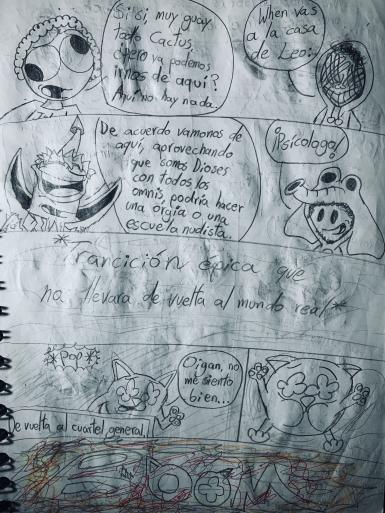 Si si, muy guay
todo Cactus,
¿pero ya podemos
irnos de aquí?
Aquí no hay nada.
When vas
a la casa
de Leo:
De acuerdo vamonos de
aquí, aprovechando
que somos Dioses
con todos los
omnis, podría hacer
una orgia o una
escuela nudista.
¡Psicologo!
*Trancición épica que
na llevara de vuelta al mundo real*
*POP*
Oigan, no
me siento
bien...
De vuelta al cuartel general.
BOOM